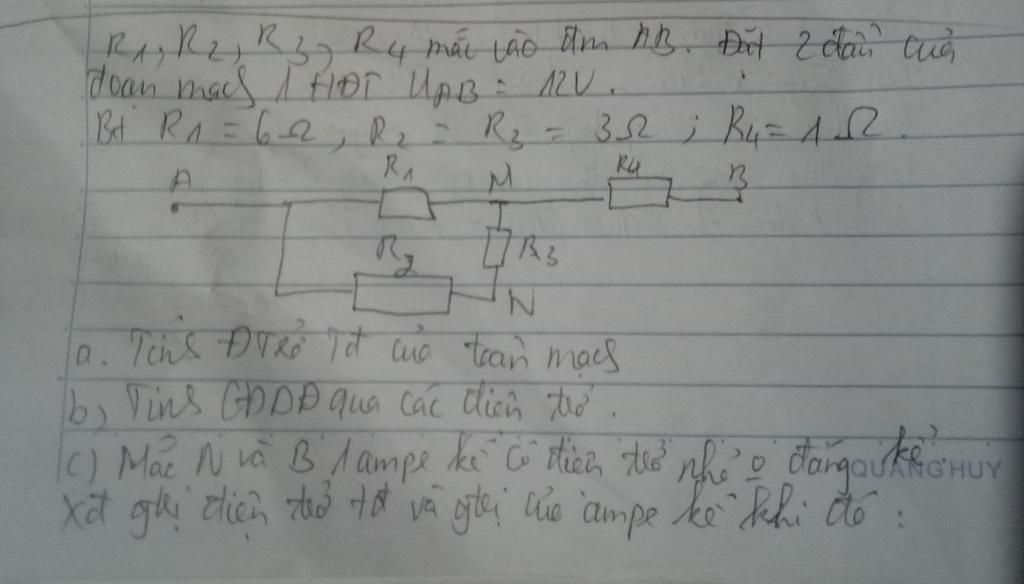 R1, R2, R3, R4 mắc vào đm AB. Đặt 2 đầu của
đoạn mạch 1 HĐT UAB = 12V.
Bt R1 = 6Ω, R2 = R3 = 3Ω ; R4 = 1Ω.
A R1 M R4 B
R2 R3
N
a. Tính ĐTrở Tđ của toàn mạch
b) Tính CĐDĐ qua các điện trở.
c) Mắc N và B 1 ampe kế có điện trở nhỏ o đáng kể.
QUANG HUY
Xđ gtrị điện trở tđ và gtrị của ampe kế khi đó :